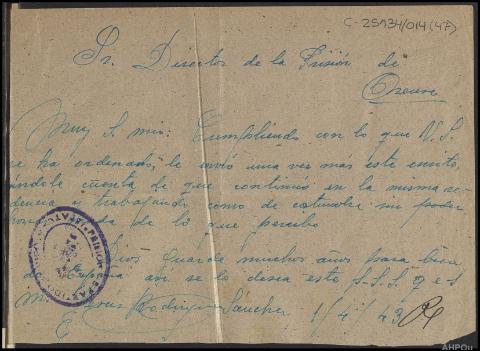 C-25134/014(47)
Sr. Director de la Prisión de
Orense
Muy S. mio: Cumpliendo con lo que V.S.
me ha ordenado, le envio una ves más este escrito,
dándole cuenta de que continúo en la misma re-
sidencia y trabajando como de costumbre sin poder
da de lo que percibo
Dios guarde muchos años para bien
de España asi se lo desea este S.S.S. q e s
M. Rodriguez Sánchez 1/4/43
PRISION PARTIDO
AHPOu